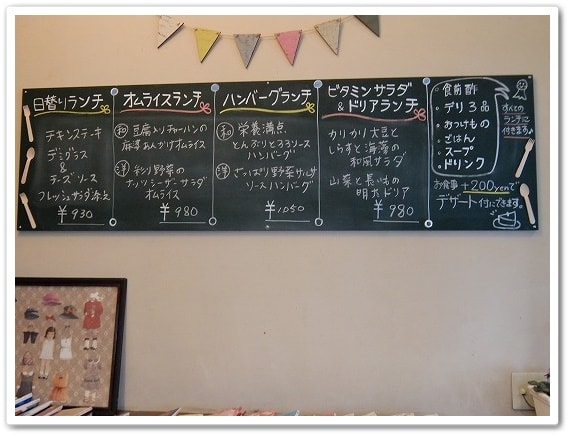 日替りランチ
チキンステーキ
デミグラス
&
チーズソース
フレッシュサラダ添え
¥930
オムライスランチ
和 豆腐入りチャーハンの
麻婆あんかけオムライス
洋 彩り野菜の
ナッツシーザーサラダ
オムライス
¥980
ハンバーグランチ
和 栄養満点
とんぶりとろろソース
ハンバーグ
洋 さっぱり野菜サルサ
ソースハンバーグ
¥1050
ビタミンサラダ
&ドリアランチ
カリカリ大豆と
しらすと海藻の
和風サラダ
山菜と長いもの
明太ドリア
¥980
・食前酢
・デリ3品
・おつけもの
・ごはん
・スープ
・ドリンク
すべての
ランチに
付きます♪
お食事+200yenで
デザート付にできます。